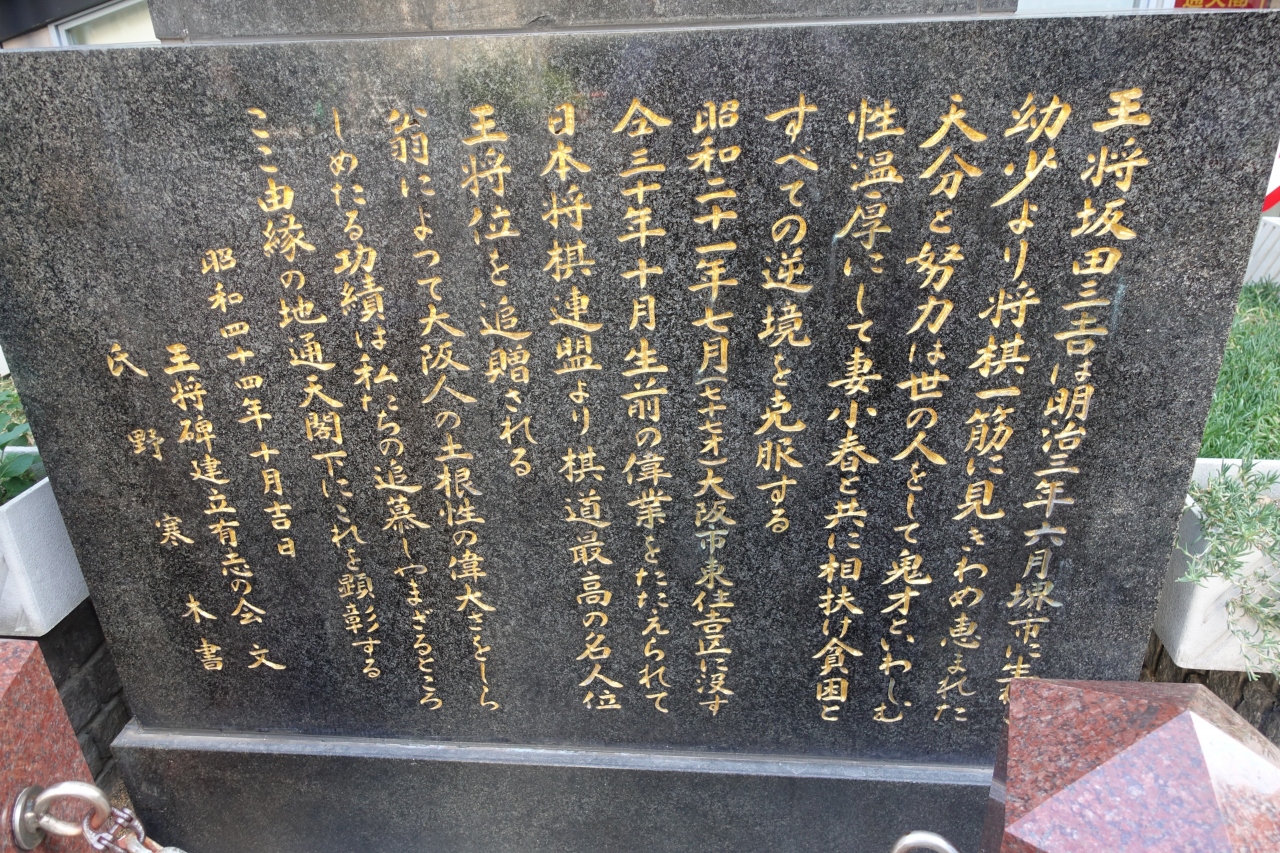 王将坂田三吉は明治三年六月堺市に生
幼少より将棋一筋に見きわめ恵まれた
天分と努力は世の人をして鬼才といわしむ
性温厚にして妻小春と共に相扶け貧困と
すべての逆境を克服する
昭和二十一年七月(七十七才)大阪市東住吉区に没す
仝三十年十月生前の偉業をたたえられて
日本将棋連盟より棋道最高の名人位
王将位を追贈される
翁によつて大阪人の土根性の偉大さをしら
しめたる功績は私たちの追慕しやまざるところ
ここ由縁の地通天閣下にこれを顕彰する
昭和四十四年十月吉日
王将碑建立有志の会 文
氏野寒木書
通天閣